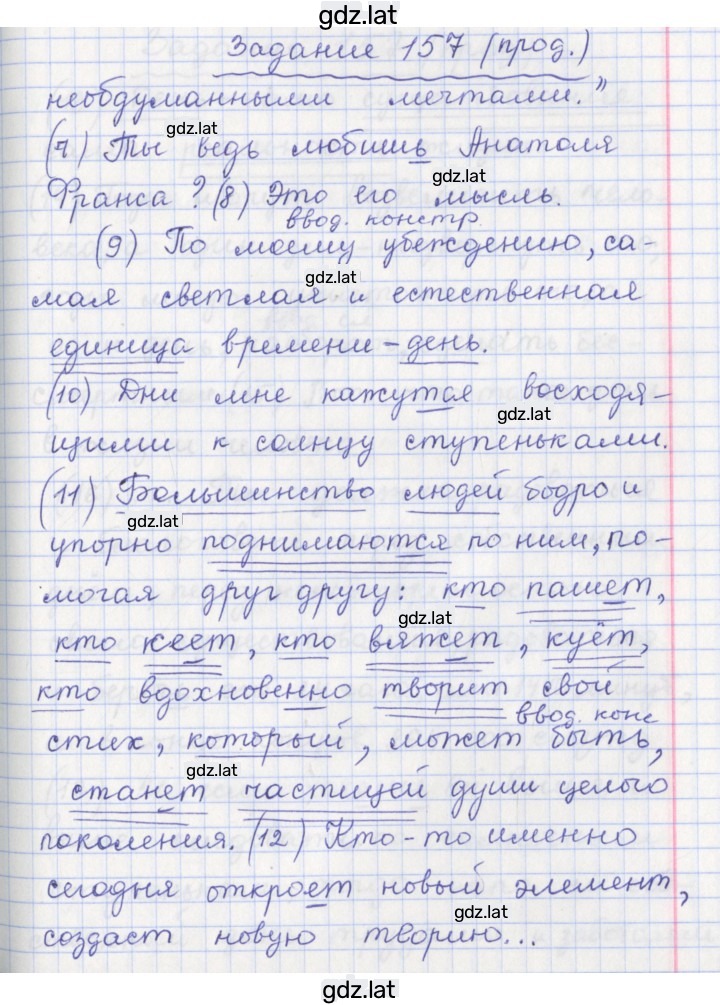 gdz.lat
Задание 157 (прод.)
необдуманными мечтами."
gdz.lat
(7) Ты ведь любишь Анатоля
gdz.lat
Франса? (8) Это его мысль.
ввод. констр.
(9) По моему убеждению, са-
gdz.lat
мая светлая и естественная
единица времени - день.
(10) Дни мне кажутся восходя-
gdz.lat
щими к солнцу ступеньками.
(11) Большинство людей бодро и
gdz.lat
упорно поднимаются по ним, по-
могая друг другу: кто пашет,
gdz.lat
кто сеет, кто вяжет, куёт,
кто вдохновенно творит свой
ввод. конс
стих, который, может быть,
gdz.lat
станет частицей души целого
поколения. (12) Кто-то именно
сегодня откроет новый элемент,
gdz.lat
создаст новую теорию...
gdz.lat